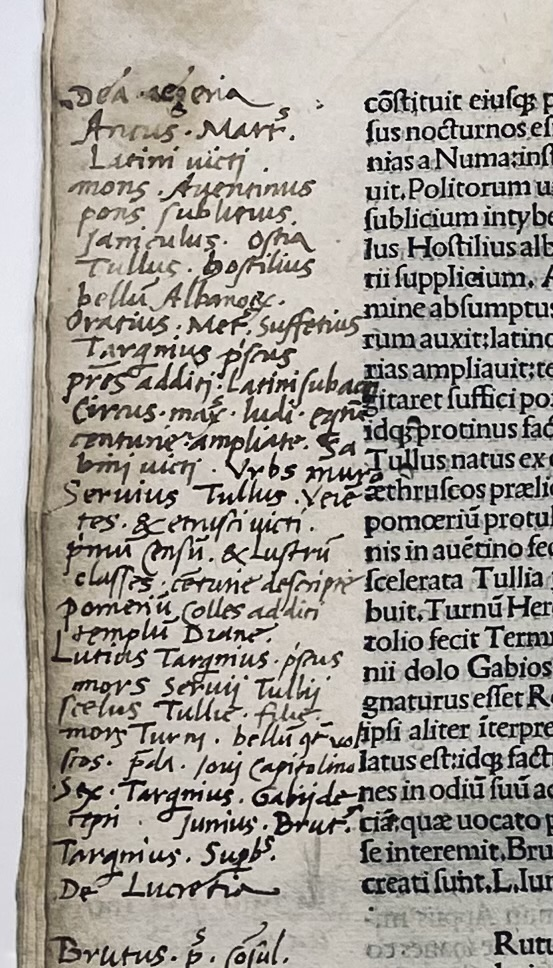 Dea aegeria
Ancus · Mart^s.
Latini uicti .
mons . Auentinus
pons sublicius.
Janiculus . Ostia
Tullus . hostilius
bellū Albanoꝝ.
Oratius . Met^s. Suffetius
Tarqnius p͛scus
pres additi . Latini subacti
Circus . max^s . ludi . eqstr
centurie ampliate. Sa
bini uicti . Vrbs muro
Seruius Tullus . Veiē
tes . & etrusci uicti .
p͛mū Censū . & Lustrū
classes . cēturie descripte
pomeriū Colles additi
templū Diane.
Lucius Tarqnius . p͛scus
mors Seruij Tullij
scelus Tullie . filie.
mors Turni . bellū 9t^a vol
scos . p̄da . Ioui Capitolino
Sex . Tarqnius . Gabij de-
cepti . Junius . Brut^s.
Tarqnius . Supb^s.
De Lucretia
Brutus . p^s. cōsul.
cōſtituit eiuſqꝫ p
ſus nocturnos eſ
nias a Numa:inſt
uit.Politorum u
ſublicium intybe
lus Hoſtilius alb
tii ſupplicium. A
mine abſumptu
rum auxit:latino
rias ampliauit:te
gitaret ſuffici po
idqꝫ protinus fac
Tullus natus ex
æthruſcos præli
pomœriū protul
nis in auētino fec
ſcelerata Tullia
buit.Turnū Her
tolio fecit Termi
nii dolo Gabios
gnaturus eſſet Ro
ipſi aliter īterpre
latus eſt:idqꝫ fact
nes in odiū ſuū ad
ciā:quæ uocato p
ſe interemit.Bru
creati ſunt.L.Iun
Rutu